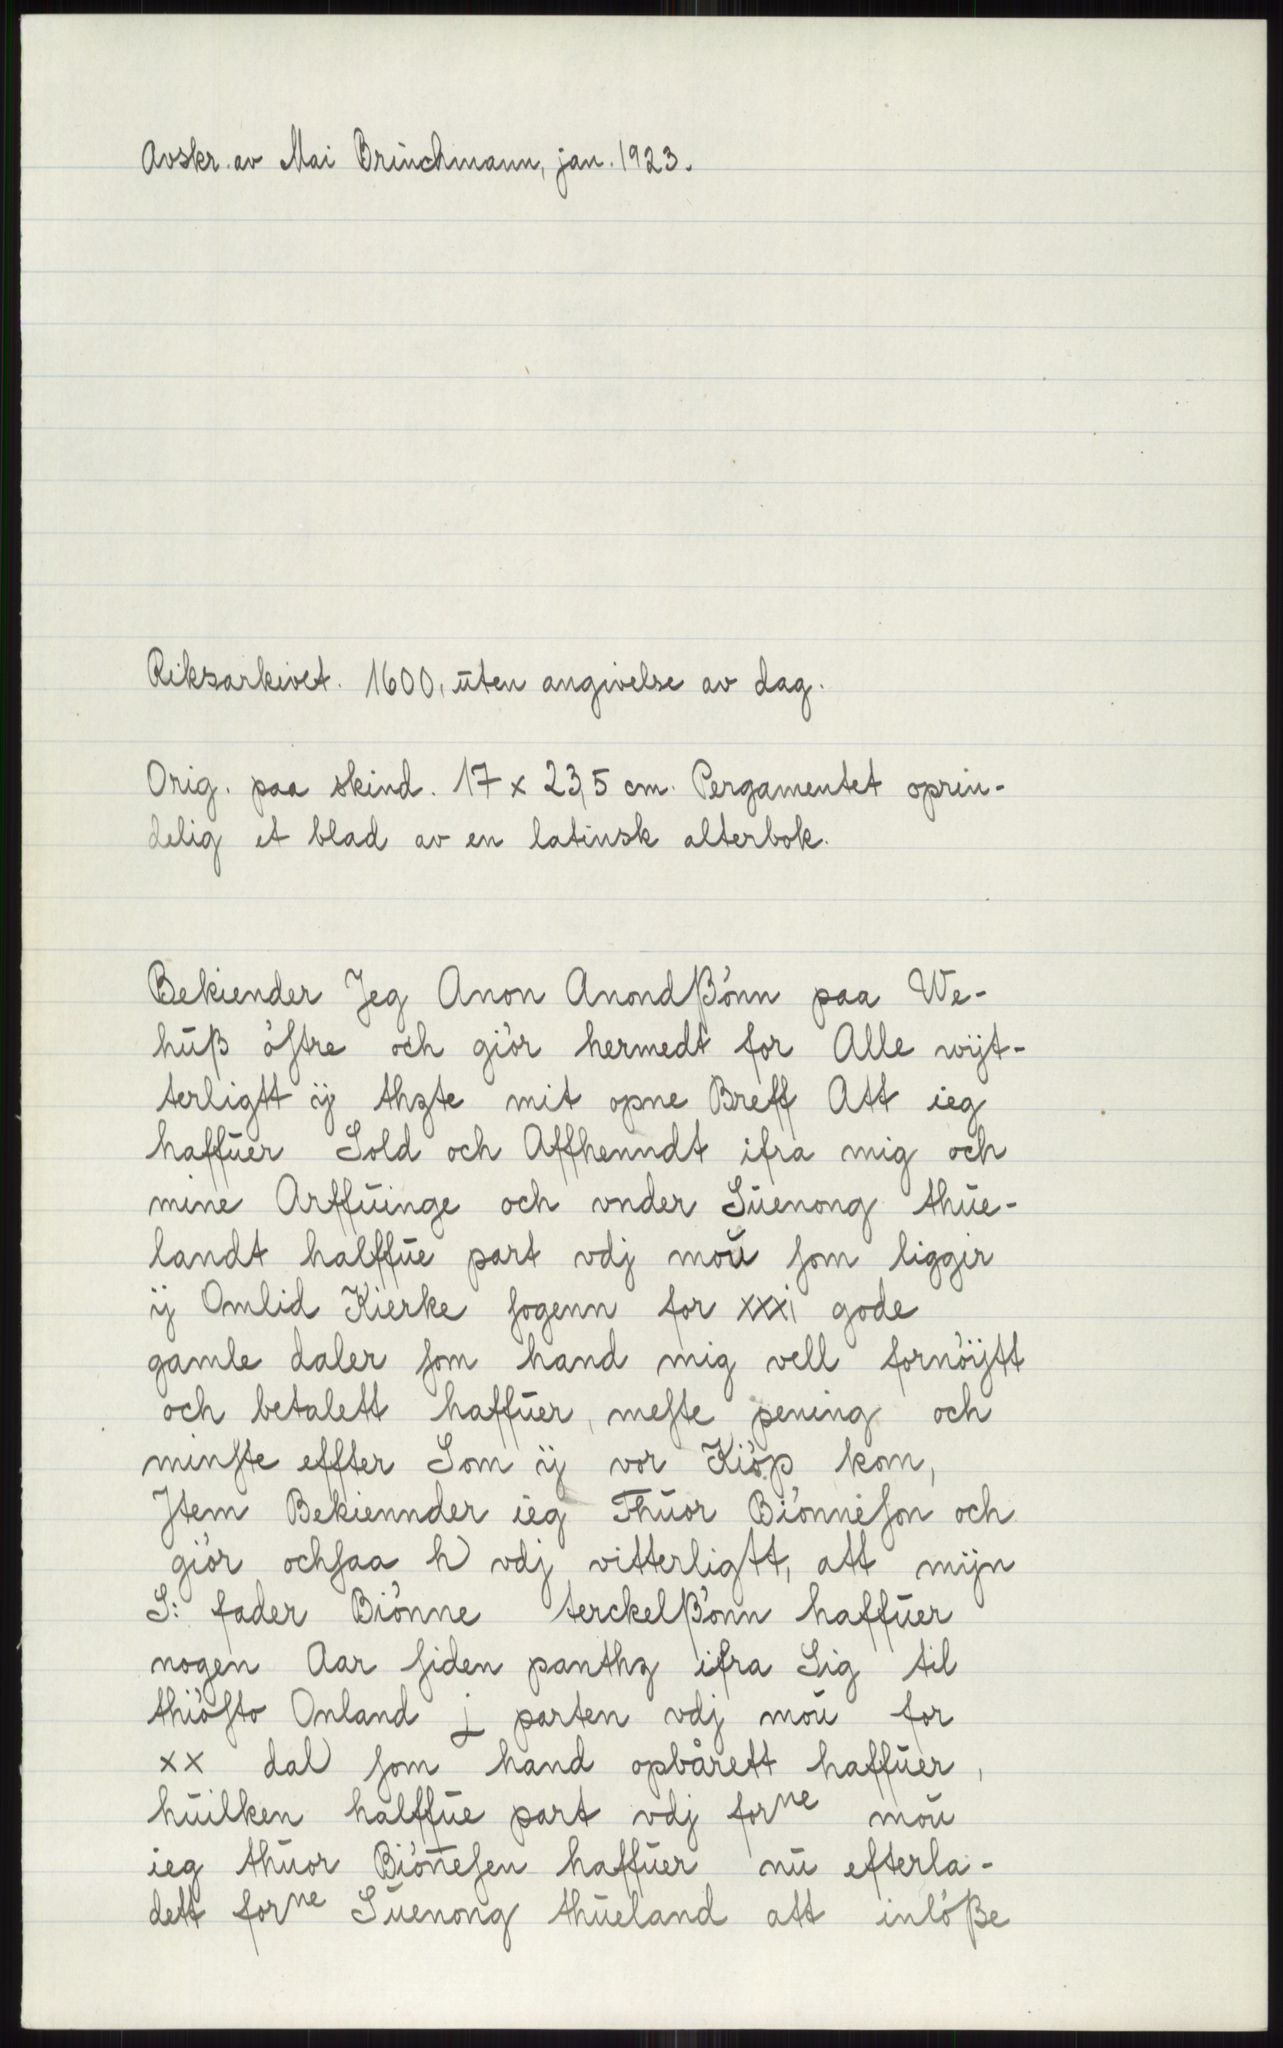 Avskr. av Mai Brinchmann, jan. 1923.
Riksarkivet. 1600, uten angivelse av dag.
Orig. paa skind. 17 x 23,5 cm. Pergamentet oprin-
delig et blad av en latinsk alterbok.
Bekiender Jeg Anon Anondßönn paa We-
huß östre och giör hermedt for Alle wijt-
terligtt ij thzte mit opne Breff Att ieg
haffuer Sold och Affhenndt ifra mig och
mine Arffuinge och vnder Suenong thue-
landt halffue part vdj mou som liggir
ij Omlid Kierke sogenn for xxxi gode
gamle daler som hand mig vell fornöijtt
och betalett haffuer, meste pening och
minste effter Som ij vor Kiöp kom,
Jtem Bekiennder ieg Thuor Biönneson och
giör ochsaa h vdj vitterligtt, att mijn
S: fader Biönne terckelßönn haffuer
nogen Aar siden panthz ifra Sig til
thiösto Onland j parten vdj mou for
xx dal som hand opbårett haffuer,
huilken halffue part vdj forne mou
ieg thuor Biön̄esen haffuer nu efterla-
dett forne Suenong thueland att inlöße